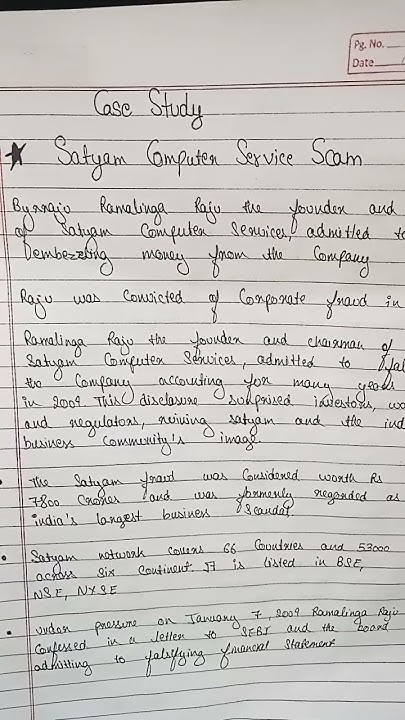 Pg. No.
Date
Case Study
★ Satyam Computer Service Scam
Byrraju Ramalinga Raju the founder and
of Satyam Computer Services, admitted to
Dembezzling money from the Company
Raju was Convicted of Corporate fraud in
Ramalinga Raju the founder and chairman of
Satyam Computer Services, admitted to fal
the Company accounting for many years
in 2009. This disclosure surprised investors, wo
and regulators, ruining satyam and the ind
business Community's image.
• The Satyam fraud was Considered worth Rs
7800 Crores and was formerly regarded as
india's largest business Scandal
• Satyam network covers 66 Countries and 53000
across Six Continent It is listed in BSE,
NSE, NYSE
• under pressure on January 7, 2009 Ramalinga Raju
Confessed in a letter to SEBI and the board
admitting to falsifying financial Statement